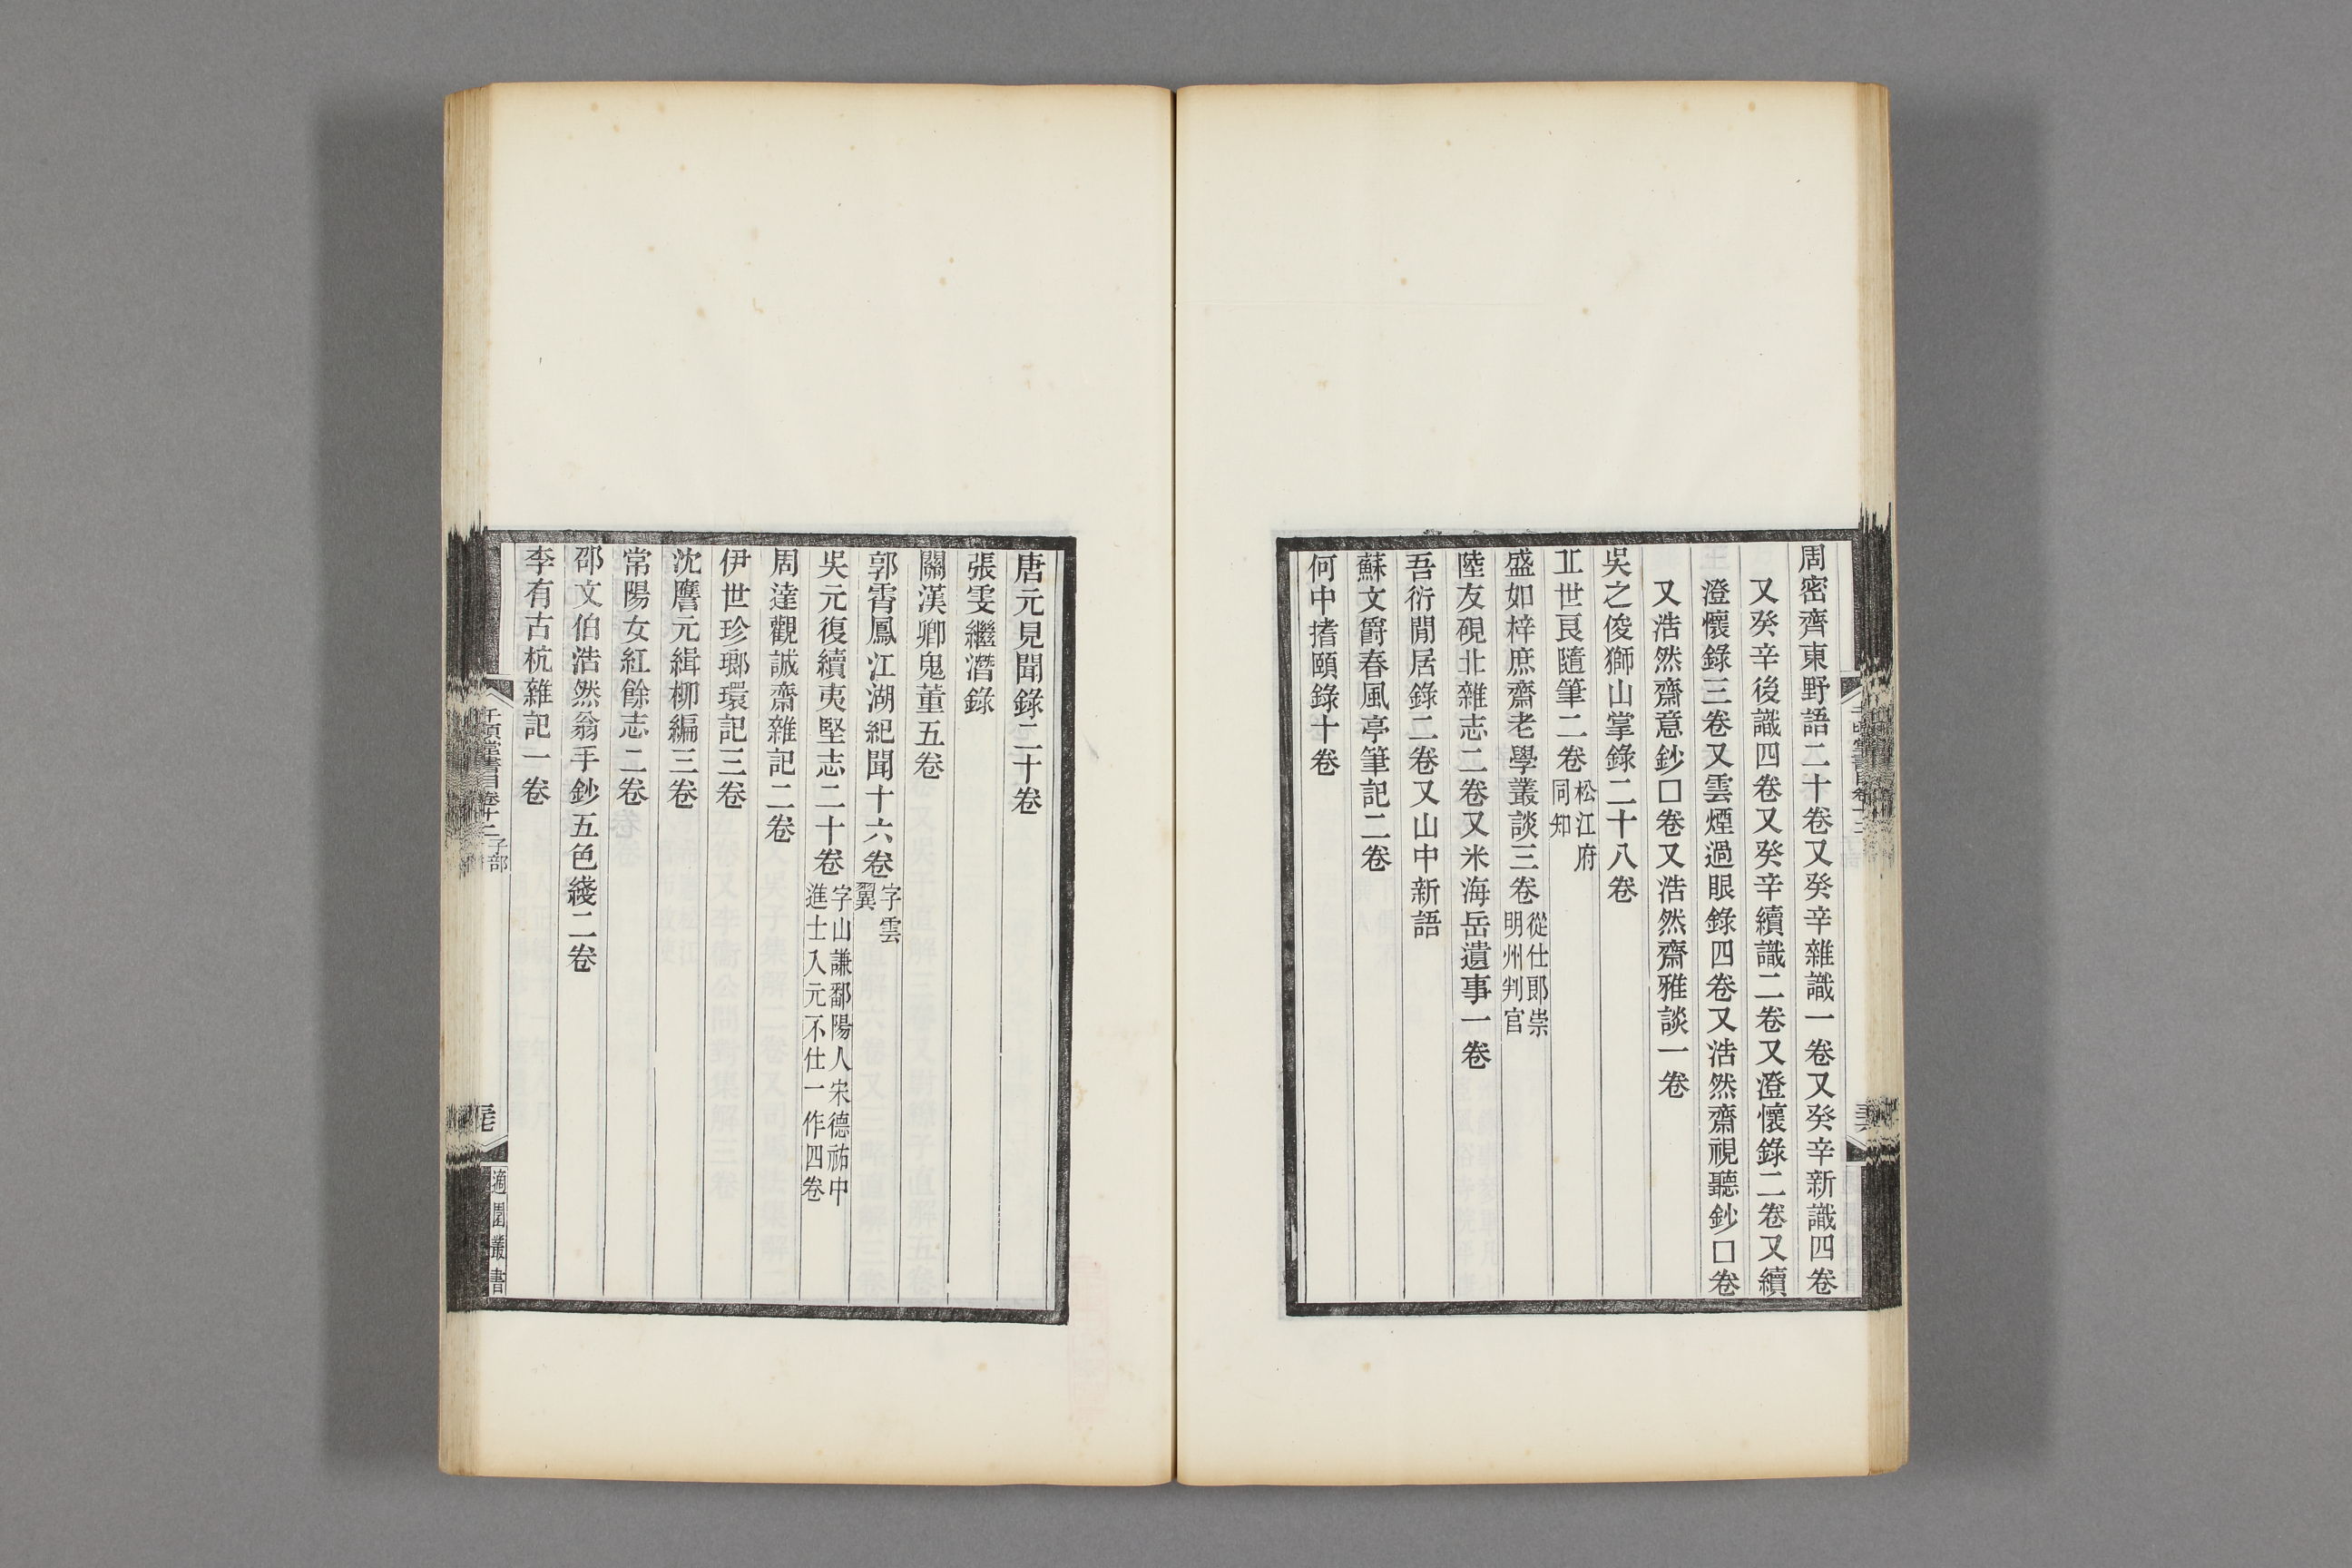 周密齊東野語二十卷又癸辛雜識一卷又癸辛新識四卷
又癸辛後識四卷又癸辛續識二卷又澄懷錄二卷又續
澄懷錄三卷又雲煙過眼錄四卷又浩然齋視聽鈔口卷
又浩然齋意鈔口卷又浩然齋雅談一卷
吳之俊獅山掌錄二十八卷
世艮隨筆二卷松江府同知
盛如梓庶齋老學叢談三卷從仕郎崇明州判官
陸友硯北雜志二卷又米海岳遺事一卷
吾衍閒居錄二卷又山中新語
蘇文爵春風亭筆記二卷
何中搘頤錄十卷
唐元見聞錄二十卷
張雯繼潛錄
關漢卿鬼董五卷
郭霄鳳江湖紀聞十六卷字雲翼
吳元復續夷堅志二十卷字山謙鄱陽人宋德祐中進士入元不仕一作四卷
周達觀誠齋雜記二卷
伊世珍瑯環記三卷
沈麐元緝柳編三卷
常陽女紅餘志二卷
邵文伯浩然翁手鈔五色綫二卷
李有古杭雜記一卷
千頃堂書目卷十二 子部
適園叢書